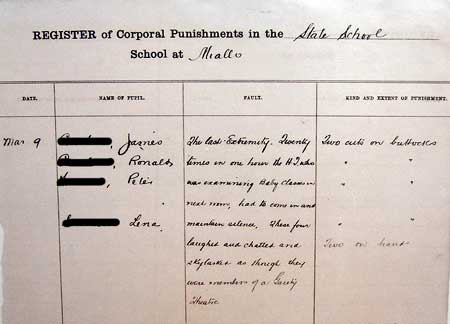 REGISTER of Corporal Punishments in the State School
School at Miallo
DATE. NAME OF PUPIL. FAULT. KIND AND EXTENT OF PUNISHMENT.
Mar 9 James The last Extremity. Twenty Two cuts on buttocks
Ronald times in one hour the H.T. who " "
Peter was examining Baby Classes in " "
next room, had to come in and
Lena maintain silence, These four " "
laughed and chatted and Two on hands
skylarked as though they
were members of a Gaiety
Theatre